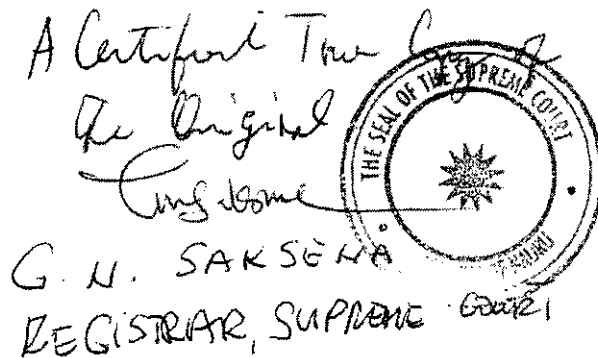 A Certified True Copy of
the Original
G. N. SAKSENA
REGISTRAR, SUPREME COURT
THE SEAL OF THE SUPREME COURT
NAURU